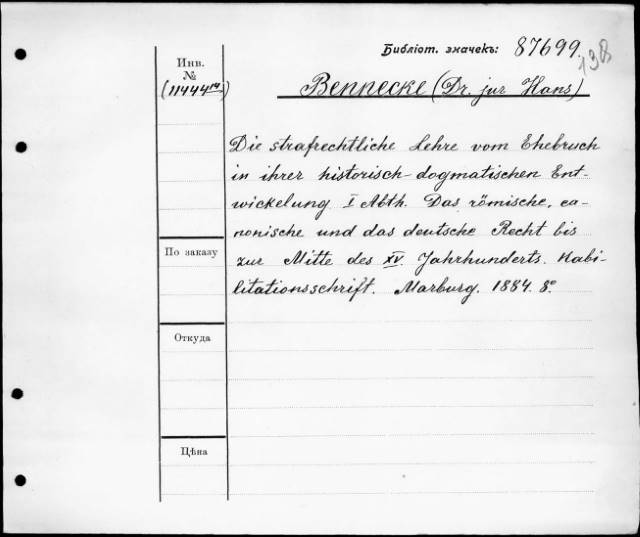 Библіот. значекъ: 87699.
138
Инв.
№
(11444 14)
Bennecke (Dr. jur Hans)
Die strafrechtliche Lehre vom Ehebruch
in ihrer historisch dogmatischen Ent-
wickelung I Abth. Das römische, ca-
nonische und das deutsche Recht bis
zur Mitte des XV. Jahrhunderts. Habi-
litationsschrift. Marburg. 1884. 8º
По заказу
Откуда
Цѣна